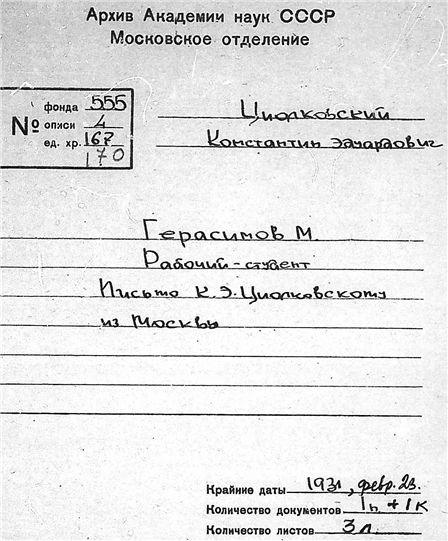 Архив Академии наук СССР
Московское отделение
№
фонда 555
описи 4
ед. хр. 167
170
Циолковский
Константин Эдуардович
Герасимов М.
Рабочий-студент
Письмо К.Э.Циолковскому
из Москвы
Крайние даты 1931, февр. 23.
Количество документов 1п + 1к
Количество листов 3 л.